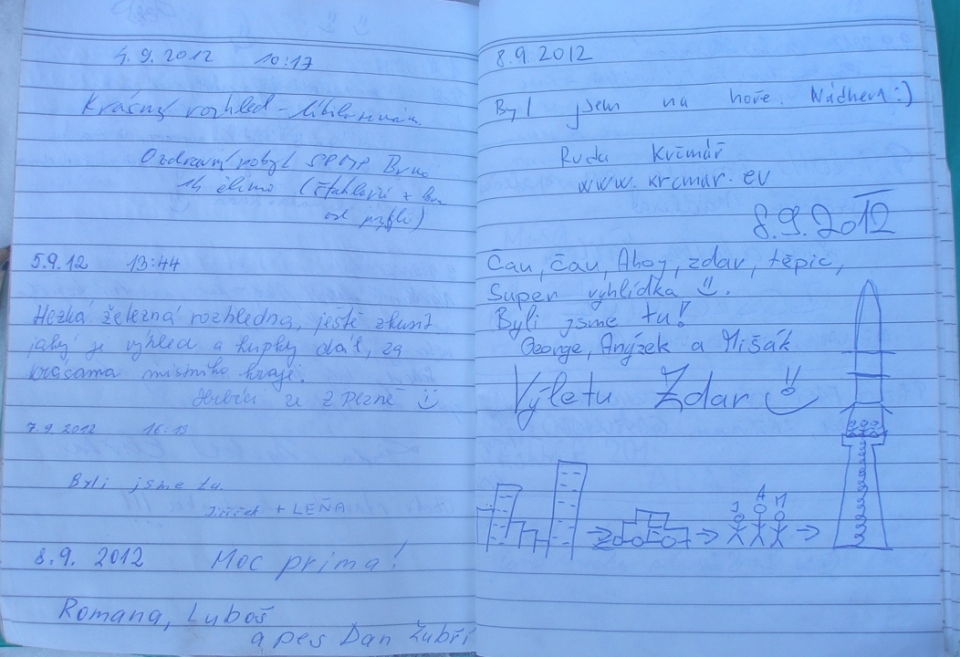 4.9.2012 10:17
Krásný rozhled -
Ozdravný pobyt Brno
14
od
5.9.12 13:44
Hezká železná rozhledna, ještě zkusit
jaký je výhled a kupky dál, za
krásama místního kraje.
z Plzně
7.9.2012 16:15
Byli jsme tu.
+ LEŇA
8.9.2012 Moc prima!
Romana, Luboš
a pes Dan Zubří
8.9.2012
Byl jsem na hoře. Nádhera :)
Ruda Krčmář
www.krcmar.eu
8.9.2012
Čau, čau, Ahoj, zdar, těpic,
Super vyhlídka
Byli jsme tu!
George, Anýzek a Mišák
Výletu Zdar
J A M